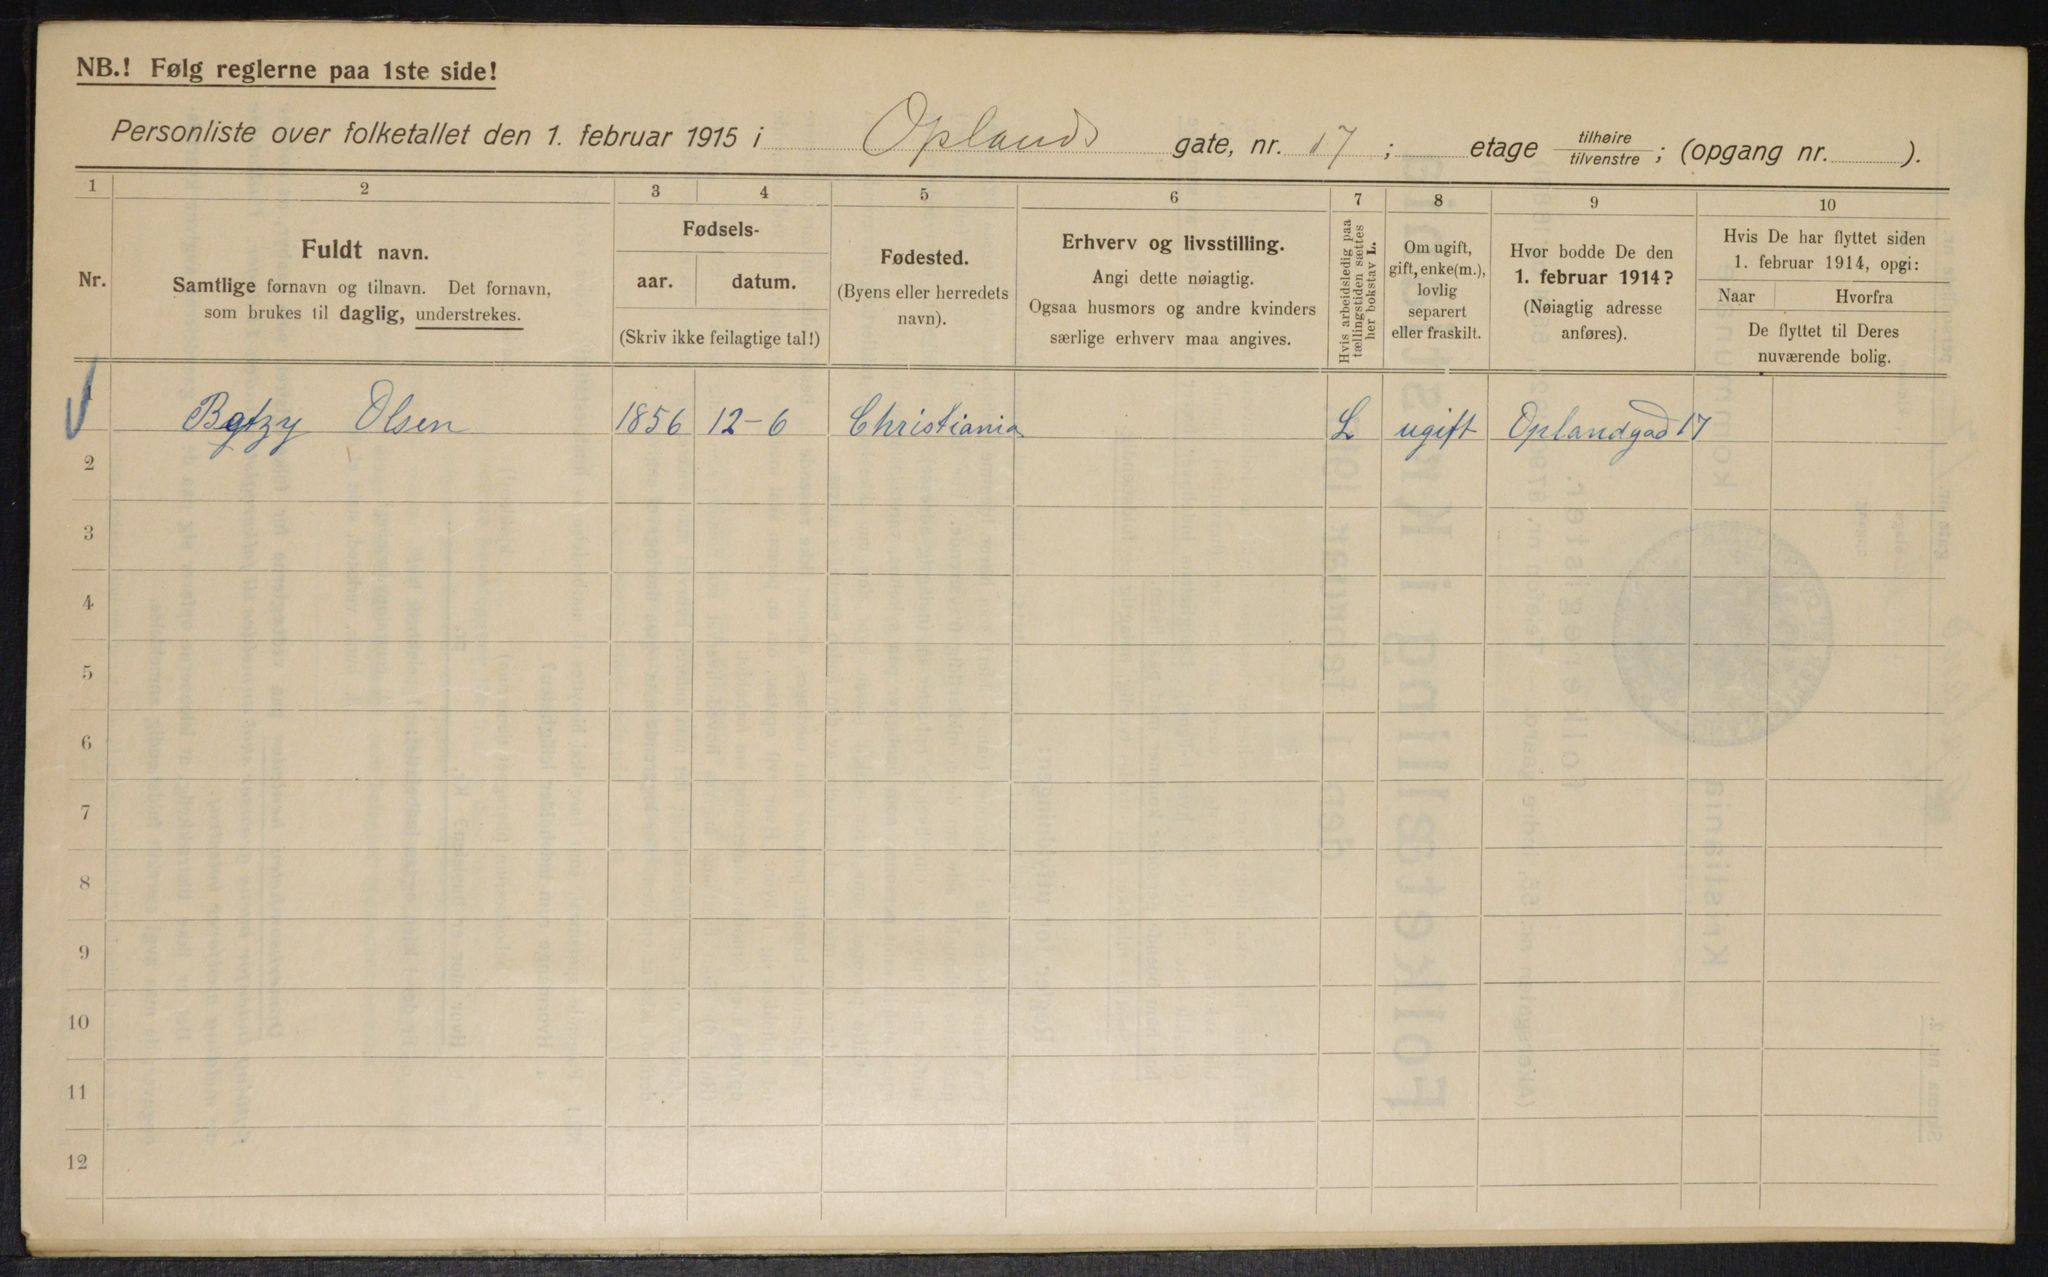 NB.! Følg reglerne paa 1ste side!
Personliste over folketallet den 1. februar 1915 i Oplands gate, nr. 17; etage tilhøire/tilvenstre; (opgang nr. ).
1 2 3 4 5 6 7 8 9 10
Nr.
Fuldt navn.
Samtlige fornavn og tilnavn. Det fornavn,
som brukes til daglig, understrekes.
Fødsels-
aar. datum.
(Skriv ikke feilagtige tal!)
Fødested.
(Byens eller herredets
navn).
Erhverv og livsstilling.
Angi dette nøiagtig.
Ogsaa husmors og andre kvinders
særlige erhverv maa angives.
Hvis arbeidsledig paa
tællingstiden sættes
her bokstav L.
Om ugift,
gift, enke(m.),
lovlig
separert
eller fraskilt.
Hvor bodde De den
1. februar 1914?
(Nøiagtig adresse
anføres).
Hvis De har flyttet siden
1. februar 1914, opgi:
Naar Hvorfra
De flyttet til Deres
nuværende bolig.
Betzy Olsen 1856 12-6 Christiania L ugift Oplandgad 17
2
3
4
5
6
7
8
9
10
11
12